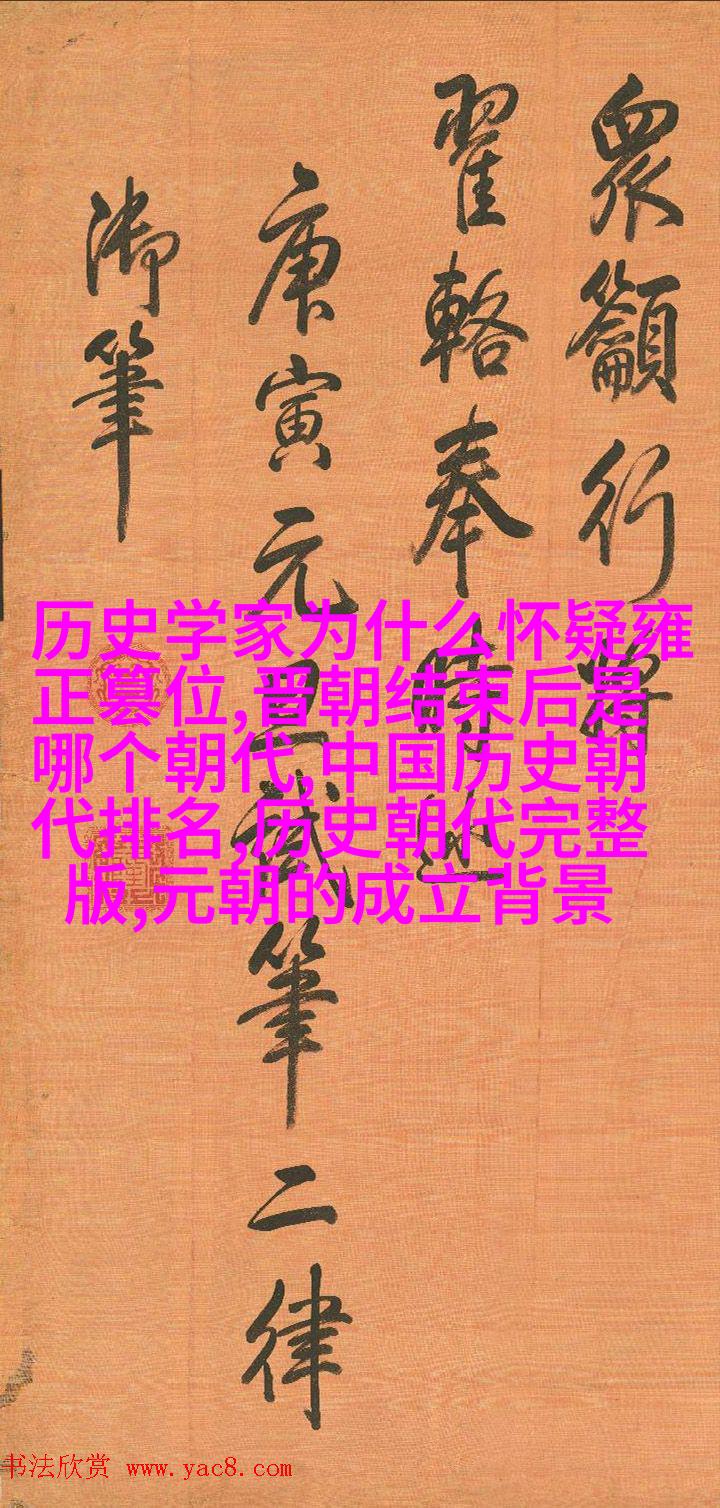 眾籲行將
翟輅奉時巡
庚寅元旦試筆二律
御筆
历史学家为什么怀疑雍
正篡位,晋朝结束后是
哪个朝代,中国历史朝
代排名,历史朝代完整
版,元朝的成立背景
书法欣赏 www.yac8.com